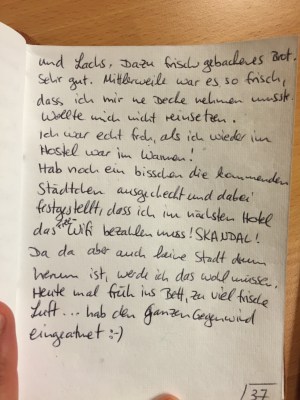 und Lachs. Dazu frisch gebackenes Brot.
Sehr gut. Mittlerweile war es so frisch,
dass ich mir ne Decke nehmen musste.
Wollte mich nicht reinsetzen.
Ich war echt froh, als ich wieder im
Hostel war im Warmen!
Hab noch ein bisschen die kommenden
Städtchen ausgecheckt und dabei
festgestellt, dass ich im nächsten Hotel
das Wifi bezahlen muss! SKANDAL!
Da da aber auch keine Stadt drum
herum ist, werde ich das wohl müssen.
Heute mal früh ins Bett, zu viel frische
Luft... hab den ganzen Gegenwind
eingeatmet :-)
37